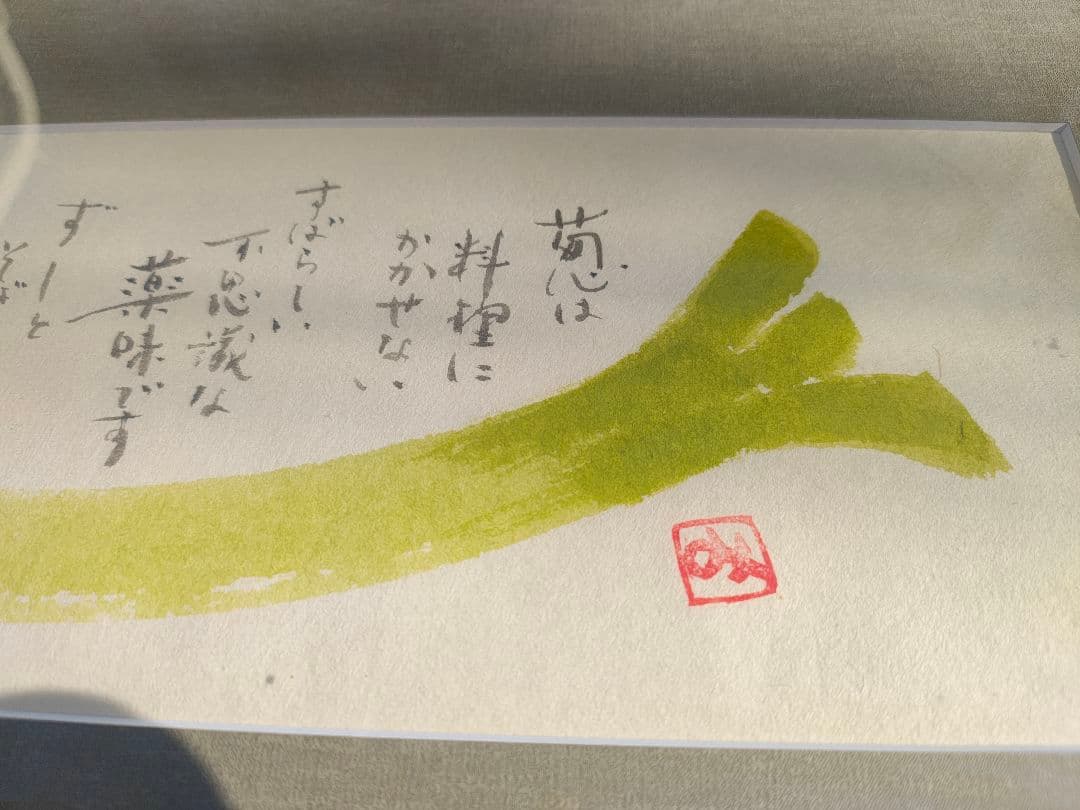 葱は
料理に
かかせない
すばらしい
不思議な
薬味です
ずーと
そば